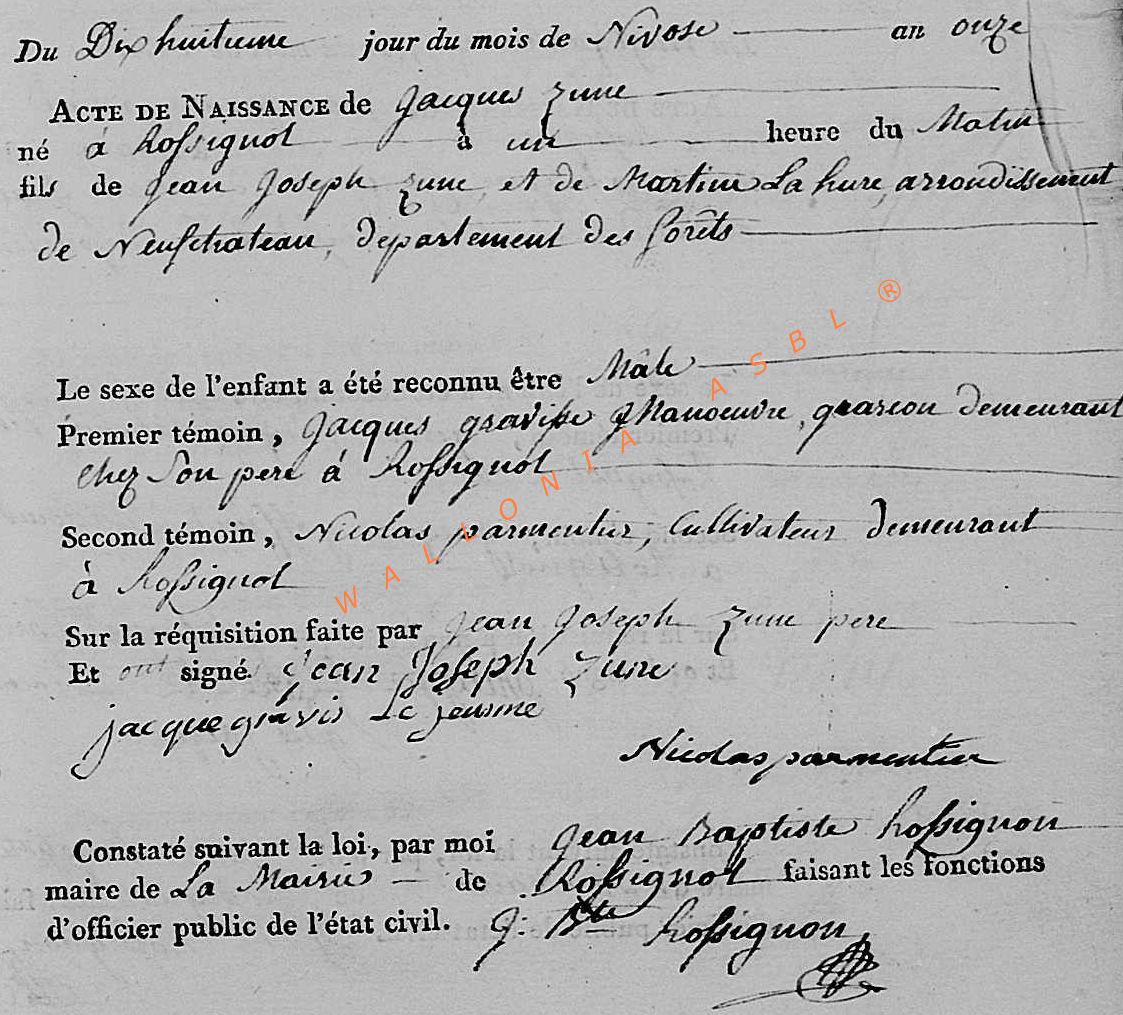 Du Dix huitieme jour du mois de Nivose an onze
ACTE DE NAISSANCE de Jacques Zune
né à Rossignol à un heure du Matin
fils de Jean Joseph Zune, et de Martine La hure, arrondissement
de Neufchateau, departement des forêts
Le sexe de l'enfant a été reconnu être Mâle
Premier témoin, Jacques Manoeuvre, garcon demeurant
chez Son pere à Rossignol
Second témoin, Nicolas parmentier, Cultivateur demeurant
à Rossignol
Sur la réquisition faite par Jean Joseph Zune pere
Et ont signé. Jean Joseph Zune
jacque gravis Le jeusne
Nicolas parmentier
Constaté suivant la loi, par moi Jean Baptiste Rossignon
maire de La Mairie de Rossignol faisant les fonctions
d'officier public de l'état civil. J: Bte Rossignon
WALLONIA ASBL ®